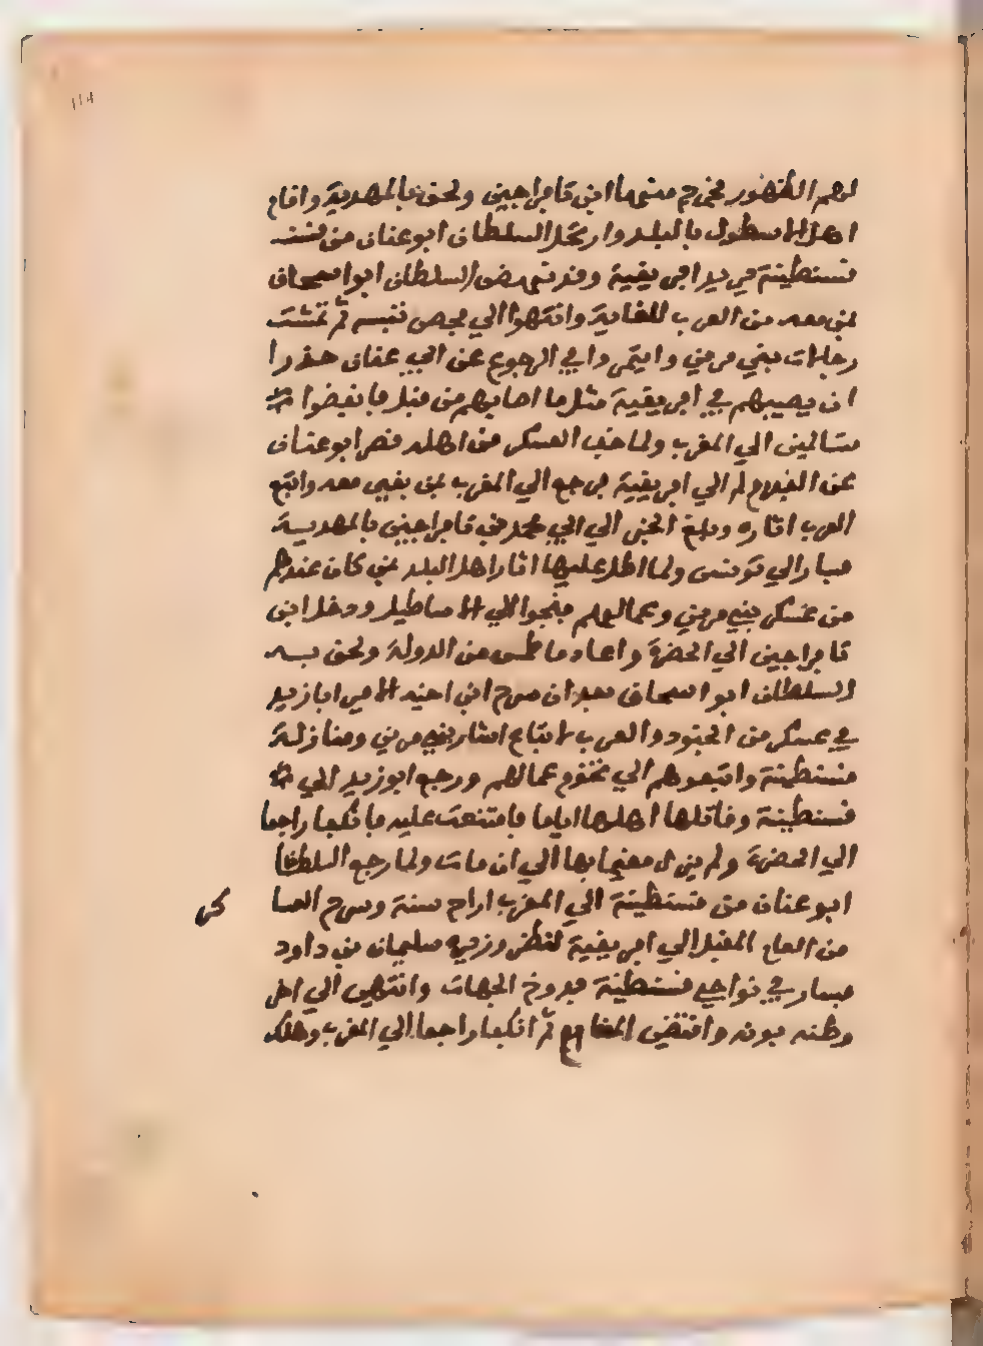 ١١٨
لهم الظهور فخرج منها ابن تافراجين ولحق بالمهدية واقام
اهل الاسطول بالبلد وارتحل السلطان ابو عنان من
قسنطينة يريد افريقية وقد نهض السلطان ابو اسحاق
بمن معه من العرب للقايه وانتهوا الي فحص تبسه ثم تمشت
رجالات بني مرين وايتمروا في الرجوع عن ابي عنان حذرا
ان يصيبهم في افريقية مثل ما اصابهم من قبل فانفضوا
متسالمين الي المغرب ولما خف العسكر من اهله قصر ابو عنان
عن القدوم الي افريقية فرجع الي المغرب بمن بقي معه واتبع
العرب اثاره وبلغ الخبر الي ابي محمد بن تافراجين بالمهدية
فسار الي تونس ولما اطل عليها اثار اهل البلد بمن كان عندهم
من عسكر بني مرين وعمالهم فنجوا الي الاساطيل ودخل ابن
تافراجين الي الحضرة واعاد ما طمس من الدولة ولحق به
السلطان ابو اسحاق بعد ان سرح ابن اخيه الامير ابا زيد
في عسكر من الجنود والعرب لاتباع اثار بني مرين ومنازلة
قسنطينة واتبعوهم الي تخوم عمالهم ورجع ابو زيد الي
قسنطينة وقاتلها اهلها اياما فامتنعت عليه فانكفا راجعا
الي الحضرة ولم يزل مقيما بها الي ان مات ولما رجع السلطان
ابو عنان من قسنطينة الي المغرب اراح سنة وسرح العساكر
من العام المقبل الي افريقية لنظر وزيره سليمان بن داود
فسار في نواحي قسنطينة فدوخ الجهات وانتهي الي اهل
وطنه بونه واقتضي المغارم ثم انكفا راجعا الي المغرب وهلك